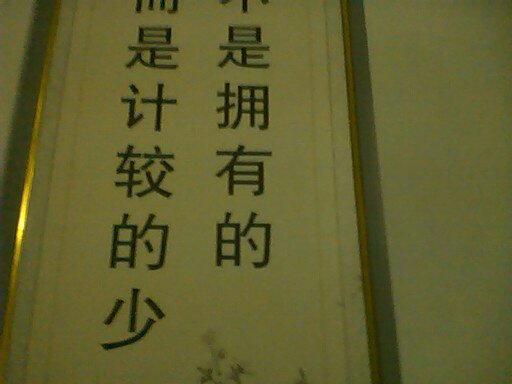 不是拥有的
而是计较的少